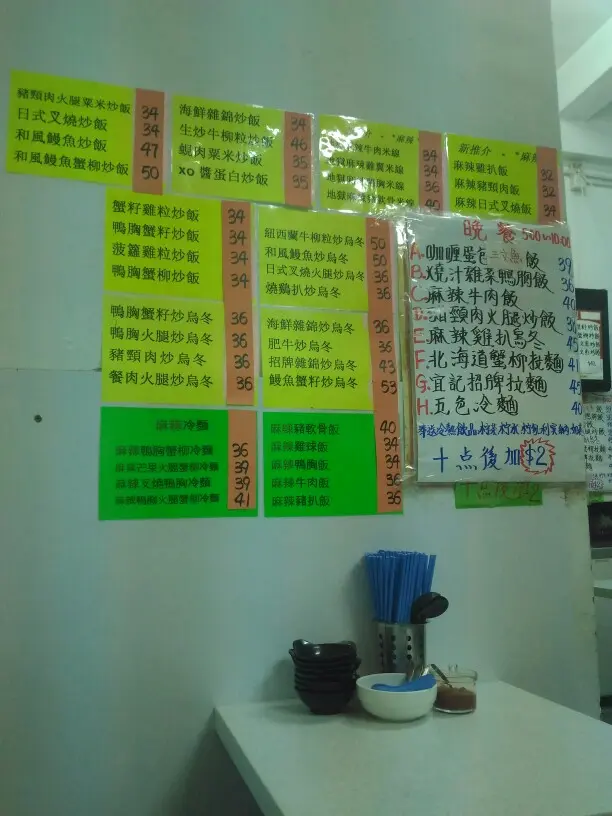 豬頸肉火腿粟米炒飯 34
日式叉燒炒飯 34
和風鰻魚炒飯 47
和風鰻魚蟹柳炒飯 50
海鮮雜錦炒飯 34
生炒牛柳粒炒飯 46
蝦肉粟米炒飯 35
xo 醬蛋白炒飯 35
麻辣
辣牛肉米線 34
地獄麻辣雞翼米線 34
地獄 胸米線 36
地獄麻辣 骨米線 40
新推介 - *麻辣
麻辣雞扒飯 32
麻辣豬頸肉飯 32
麻辣日式叉燒飯 34
蟹籽雞粒炒飯 34
鴨胸蟹籽炒飯 34
菠蘿雞粒炒飯 34
鴨胸蟹柳炒飯 34
紐西蘭牛柳粒炒烏冬 50
和風鰻魚炒烏冬 50
日式叉燒火腿炒烏冬 36
燒鷄扒炒烏冬 36
鴨胸蟹籽炒烏冬 36
鴨胸火腿炒烏冬 36
豬頸肉炒烏冬 36
餐肉火腿炒烏冬 36
海鮮雜錦炒烏冬 36
肥牛炒烏冬 36
招牌雜錦炒烏冬 43
鰻魚蟹籽炒烏冬 53
麻辣冷麵
麻辣鴨胸蟹柳冷麵 36
火腿蟹柳冷麵 39
麻辣叉燒鴨胸冷麵 39
麻辣鴨胸火腿蟹柳冷麵 41
麻辣豬軟骨飯 40
麻辣雞球飯 34
麻辣鴨胸飯 34
麻辣牛肉飯 36
麻辣豬扒飯 36
晚餐 5:00~10:00
A. 咖喱蛋包 飯 39
B. 燒汁雞菜鴨胸飯 36
C. 麻辣牛肉飯 40
D. 豬頸肉火腿炒飯 36
E. 麻辣雞扒烏冬
F. 北海道蟹柳拉麵 41
G. 宜記招牌拉麵 45
H. 五色冷麵 40
十点後加$2
十点後加$2